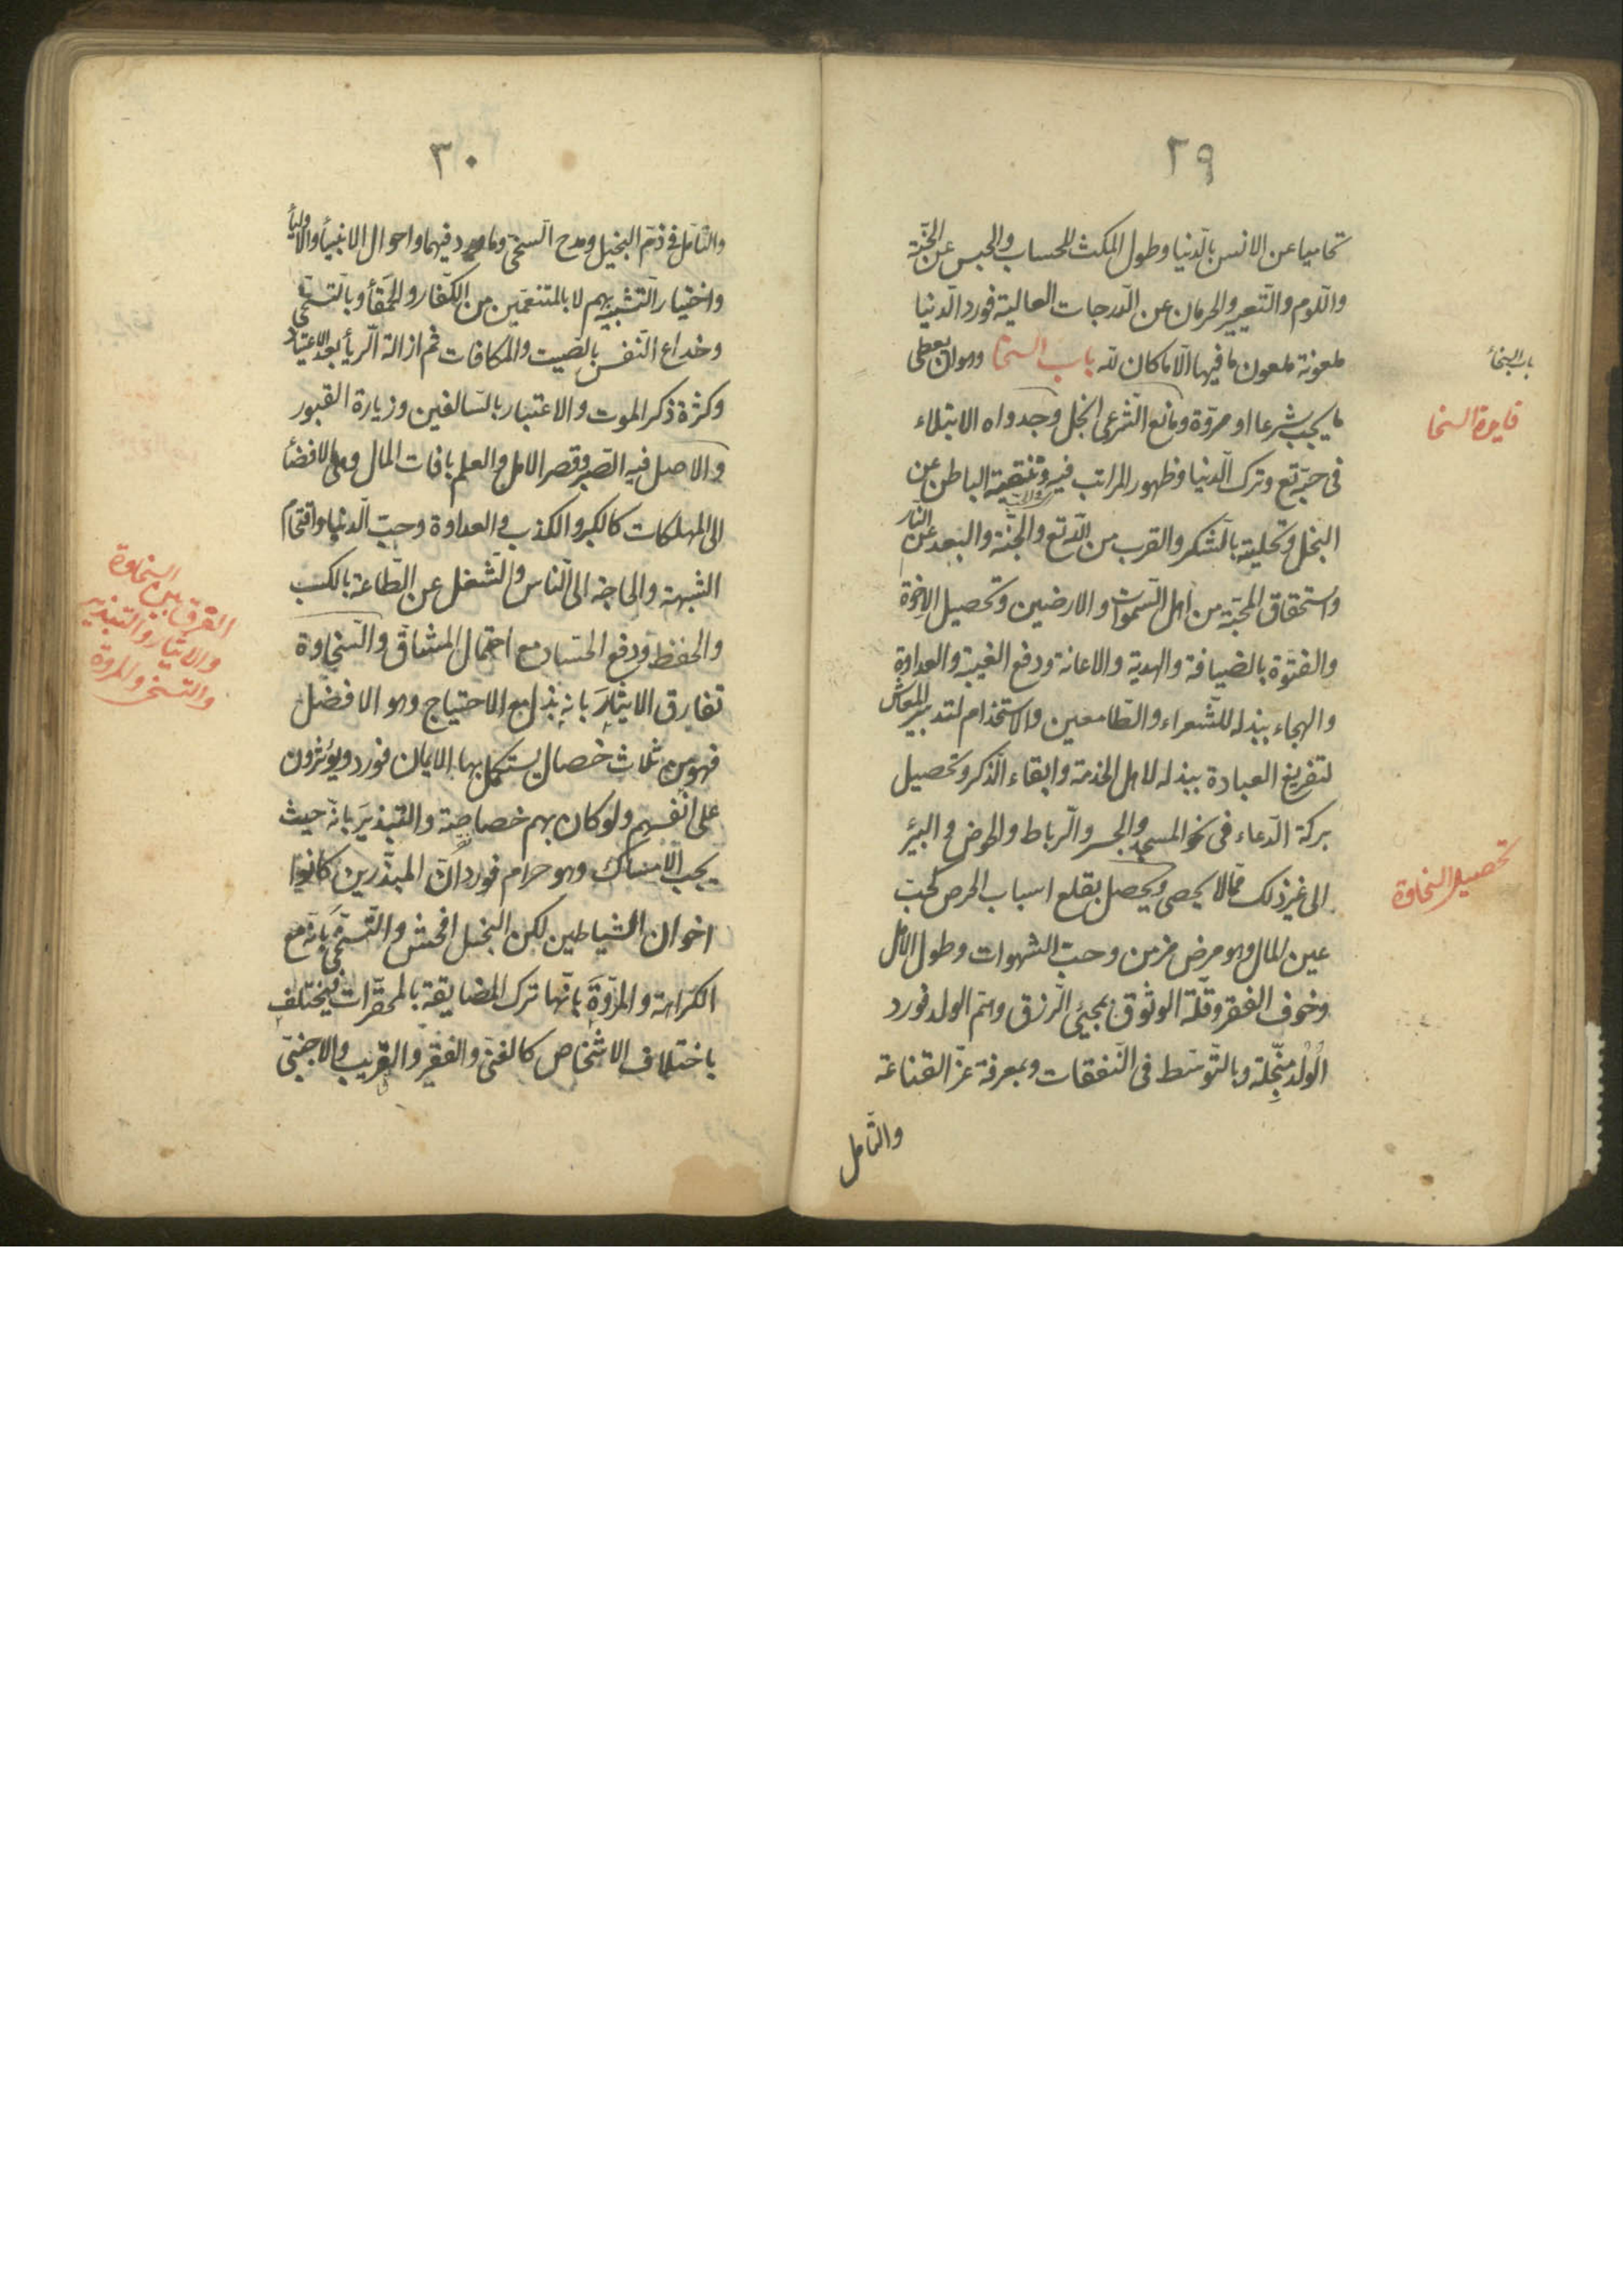 ٢٩
تحاميا عن الانس بالدنيا وطول المكث للحساب والحبس عن الجنة
واللوم والتعيير والحرمان عن الدرجات العالية فورد الدنيا
ملعونة ملعون ما فيها الا ما كان لله باب السخا وهو ان يعطى
ما يجب شرعا او مروة ومانع الشرعى ابخل وجدواه الابتلاء
فى حبه تع وترك الدنيا وظهور المراتب فيه وتنقية الباطن عن
البخل وتحليته بالشكر والقرب من الله تع والجنة والبعد عن النار
واستحقاق المحبة من اهل السموات والارضين وتحصيل الاخوة
والفتوة بالضيافة والهدية والاعانة ودفع الغيبة والعداوة
والهجاء ببذله للشعراء والطامعين والاستخدام لتدبير المعاش
لتفريغ العبادة ببذله لاهل الخدمة وابقاء الذكر وتحصيل
بركة الدعاء فى نحو المسجد والجسر والرباط والحوض والبئر
الى غير ذلك مما لا يحصى ويحصل بقلع اسباب الحرص كحب
عين المال وهو مرض مزمن وحب الشهوات وطول الامل
وخوف الفقر وقلة الوثوق بمجيئ الرزق وهم الولد فورد
الولد مبخلة وبالتوسط فى النفقات وبمعرفة عز القناعة
والتأمل
باب السخاء
فايدة السخا
تحصيل السخاوة
٣٠
والتأمل فى ذم البخيل ومدح السخى وما ورد فيهما واحوال الانبيأ والاوليأ
واختيار التشبيه بهم لا بالمتنعمين من الكفار والحمقأ وبالتسخى
وخداع النفس بالصيت والمكافات ثم ازالة الريأ بعد الاعتياد
وكثرة ذكر الموت والاعتبار بالسالفين وزيارة القبور
والاصل فيه الصبر وقصر الامل والعلم بافات المال وهى الافضأ
الى المهلكات كالكبر والكذب والعداوة وحب الدنيا واقتحام
الشبهة والحاجة الى الناس والشغل عن الطاعة بالكسب
والحفظ ودفع الحساد مع احتمال المشاق والسخاوة
تفارق الايثار بانه بذل مع الاحتياج وهو الافضل
فهو من ثلاث خصال يستكمل بها الايمان فورد ويؤثرون
على انفسهم ولو كان بهم خصاصة والتبذير بانه حيث
يجب الامساك وهو حرام فورد ان المبذرين كانوا
اخوان الشياطين لكن البخل افحش والتسخى بانه مع
الكراهة والمروة بانها ترك المضايقة بالمحقرات فيختلف
باختلاف الاشخاص كالغنى والفقير والقريب والاجنبى
الفرق بين السخاوة
والايثار والتبذير
والتسخى والمروة